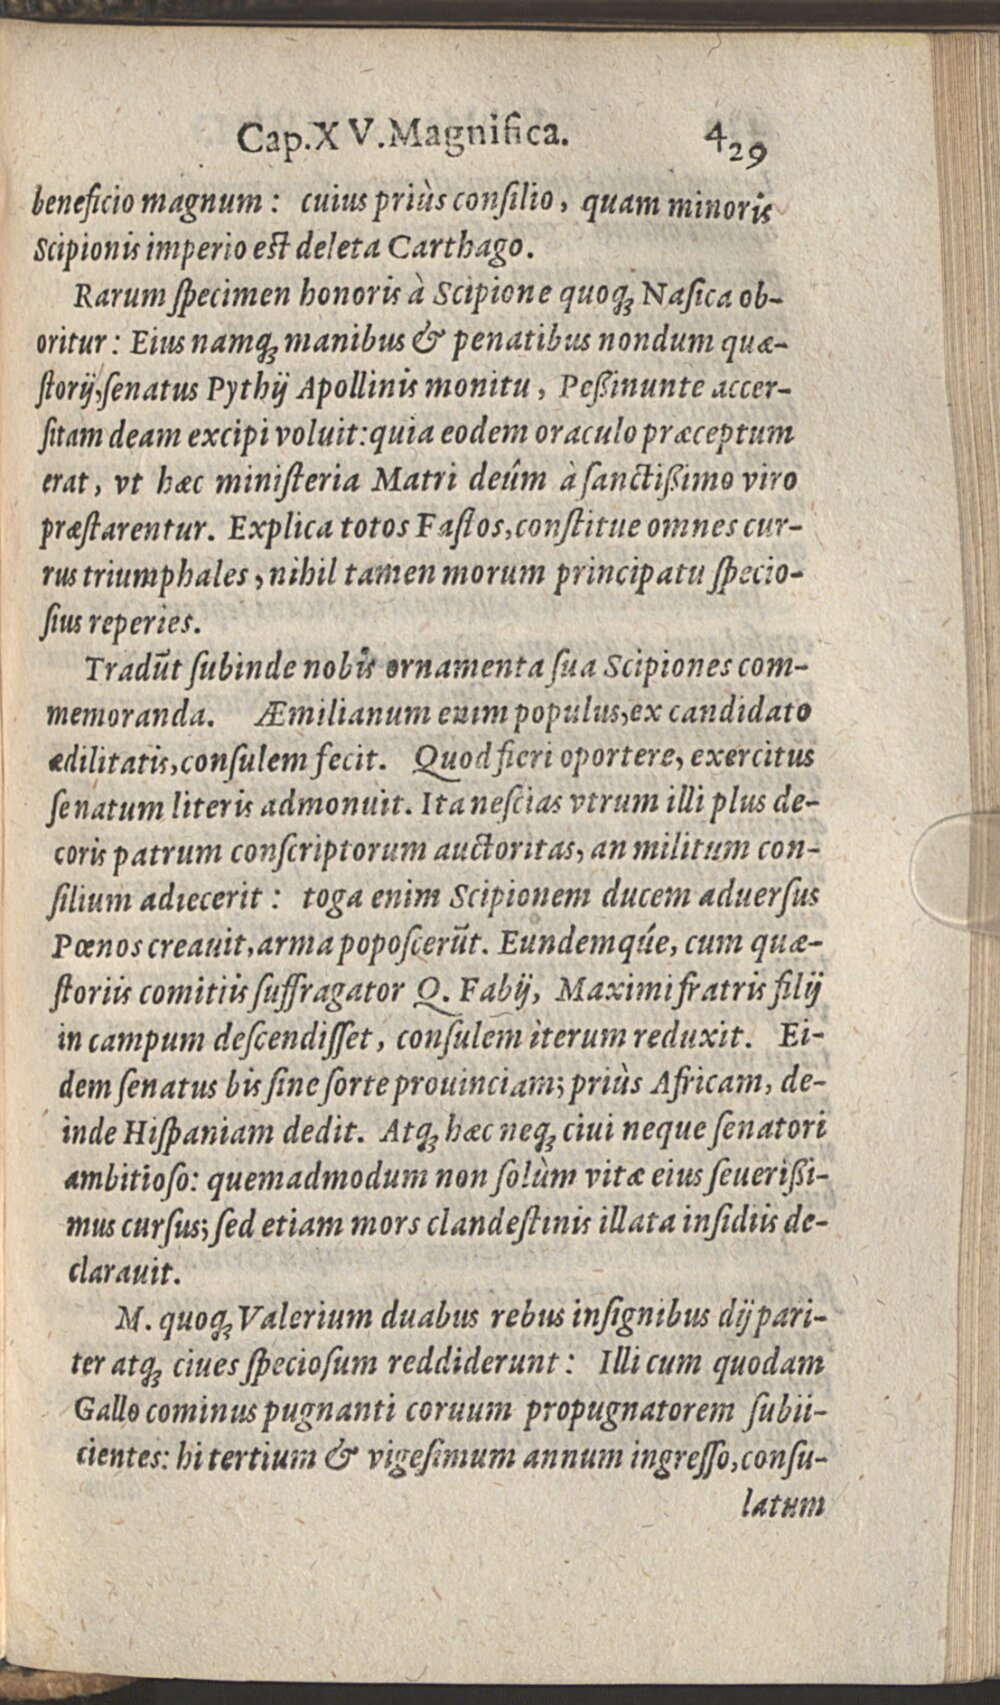 Cap. XV. Magnifica. 429
beneficio magnum: cuius priùs conſilio, quam minoris
Scipionis imperio est deleta Carthago.
Rarum ſpecimen honoris à Scipione quoq; Naſica ob-
oritur: Eius namq; manibus & penatibus nondum quæ-
ſtorij, ſenatus Pythij Apollinis monitu, Peßinunte accer-
ſitam deam excipi voluit: quia eodem oraculo præceptum
erat, vt hæc miniſteria Matri deûm à ſanctißimo viro
præſtarentur. Explica totos Faſtos, conſtitue omnes cur-
rus triumphales, nihil tamen morum principatu ſpecio-
ſius reperies.
Tradūt ſubinde nobis ornamenta ſua Scipiones com-
memoranda. Æmilianum enim populus, ex candidato
ædilitatis, conſulem fecit. Quod fieri oportere, exercitus
ſenatum literis admonuit. Ita neſcias vtrum illi plus de-
coris patrum conſcriptorum auctoritas, an militum con-
ſilium adiecerit: toga enim Scipionem ducem aduerſus
Pœnos creauit, arma popoſcerūt. Eundemqúe, cum quæ-
ſtoriis comitiis ſuffragator Q. Fabij, Maximi fratris filij
in campum deſcendiſſet, conſulem iterum reduxit. Ei-
dem ſenatus bis ſine ſorte prouinciam; priùs Africam, de-
inde Hiſpaniam dedit. Atq; hæc neq; ciui neque ſenatori
ambitioſo: quemadmodum non ſolùm vitæ eius ſeuerißi-
mus curſus; ſed etiam mors clandeſtinis illata inſidiis de-
clarauit.
M. quoq; Valerium duabus rebus inſignibus dij pari-
ter atq; ciues ſpecioſum reddiderunt: Illi cum quodam
Gallo cominus pugnanti coruum propugnatorem ſubii-
cientes: hi tertium & vigeſimum annum ingreſſo, conſu-
latum